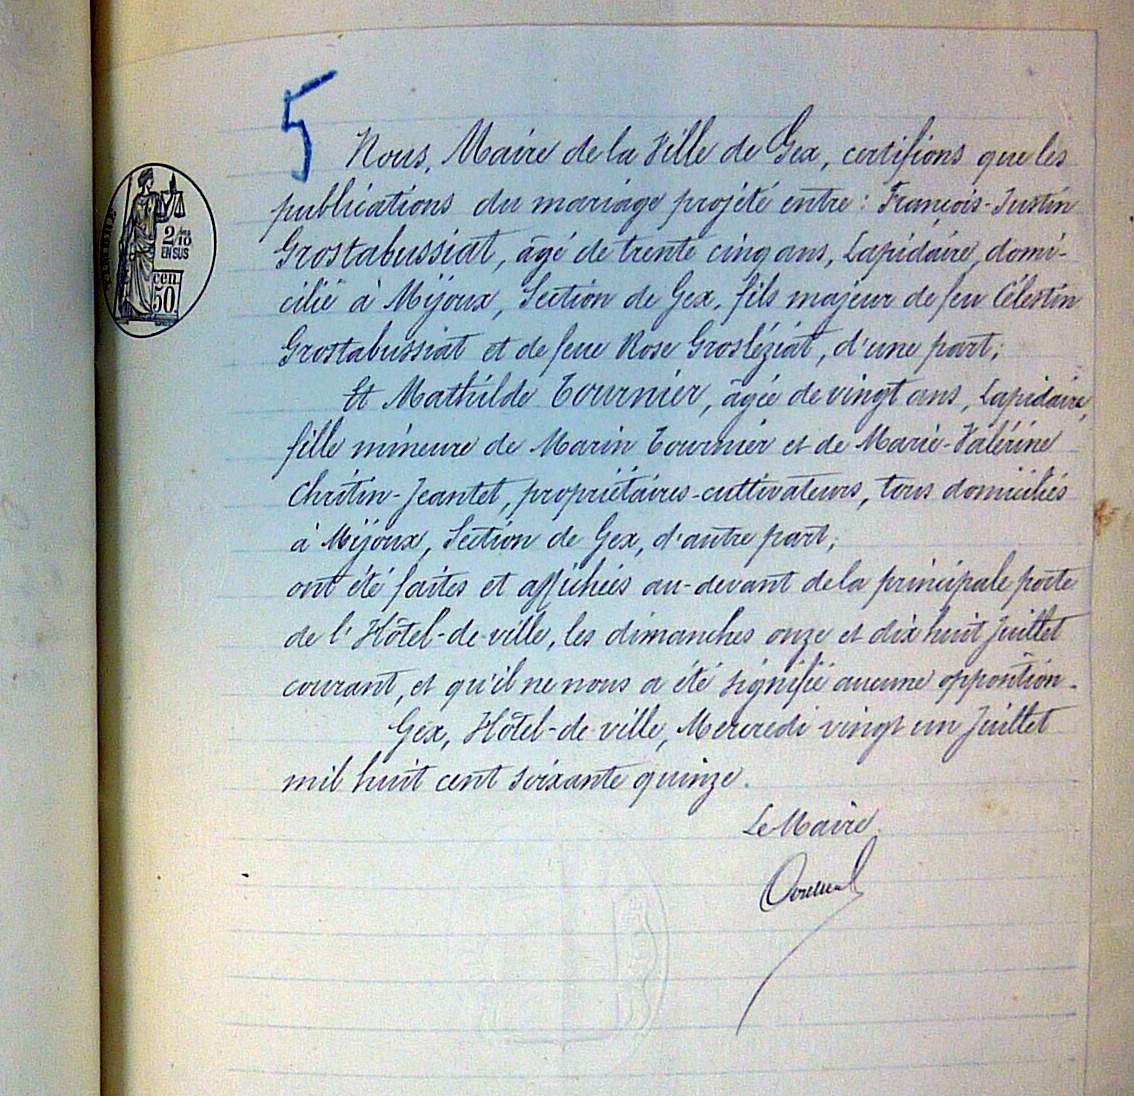 5
Nous, Maire de la Ville de Gex, certifions que les
publications du mariage projeté entre : François-Justin
Grostabussiat, âgé de trente cinq ans, Lapidaire, domi-
cilié à Mijoux, Section de Gex, fils majeur de feu Célestin
Grostabussiat et de feue Rose Grosléziat, d'une part;
Et Mathilde Tournier, âgée de vingt ans, Lapidaire,
fille mineure de Marin Tournier et de Marie-Valérine
Chritin-Jeantet, propriétaires-cultivateurs, tous domiciliés
à Mijoux, Section de Gex, d'autre part;
ont été faites et affichées au-devant de la principale porte
de l'Hôtel-de-ville, les dimanches onze et dix huit Juillet
courant, et qu'il ne nous a été signifié aucune opposition.
Gex, Hôtel-de-ville, Mercredi vingt un Juillet
mil huit cent soixante quinze.
Le Maire
2/10
EN SUS
50